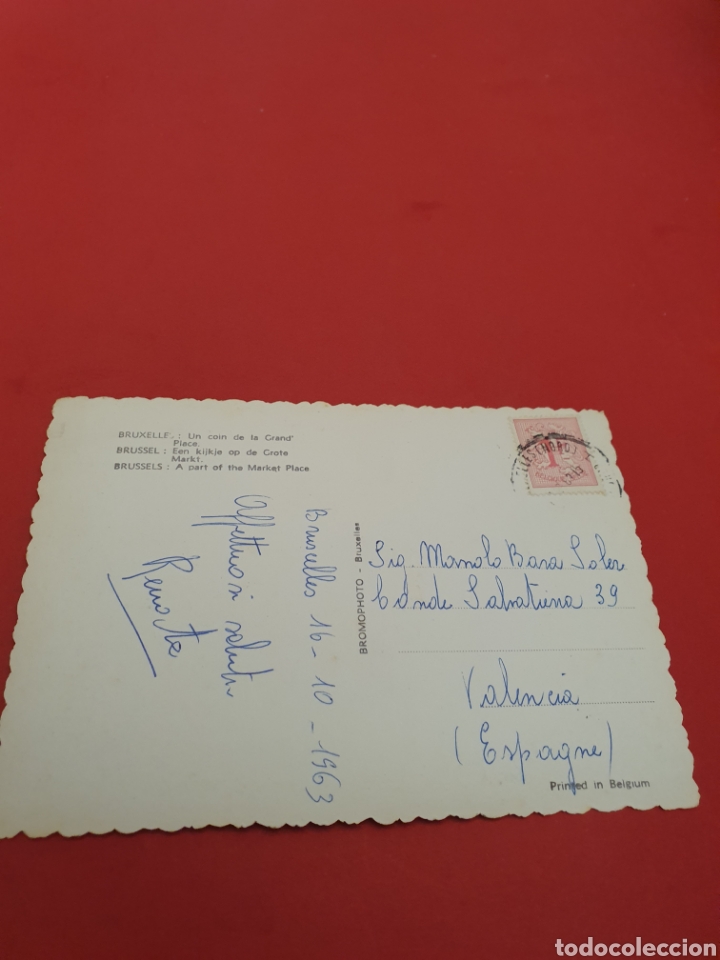 BRUXELLE. : Un coin de la Grand'
Place.
BRUSSEL : Een kijkje op de Grote
Markt.
BRUSSELS : A part of the Market Place
Bruxelles 16-10-1963
Affettuosi saluti
BROMOPHOTO - Bruxelles
1
BELGIQUE
Sig. Manolo Bara Soler
Conde Salvatierra 39
Valencia
(Espagne)
Printed in Belgium
todocoleccion